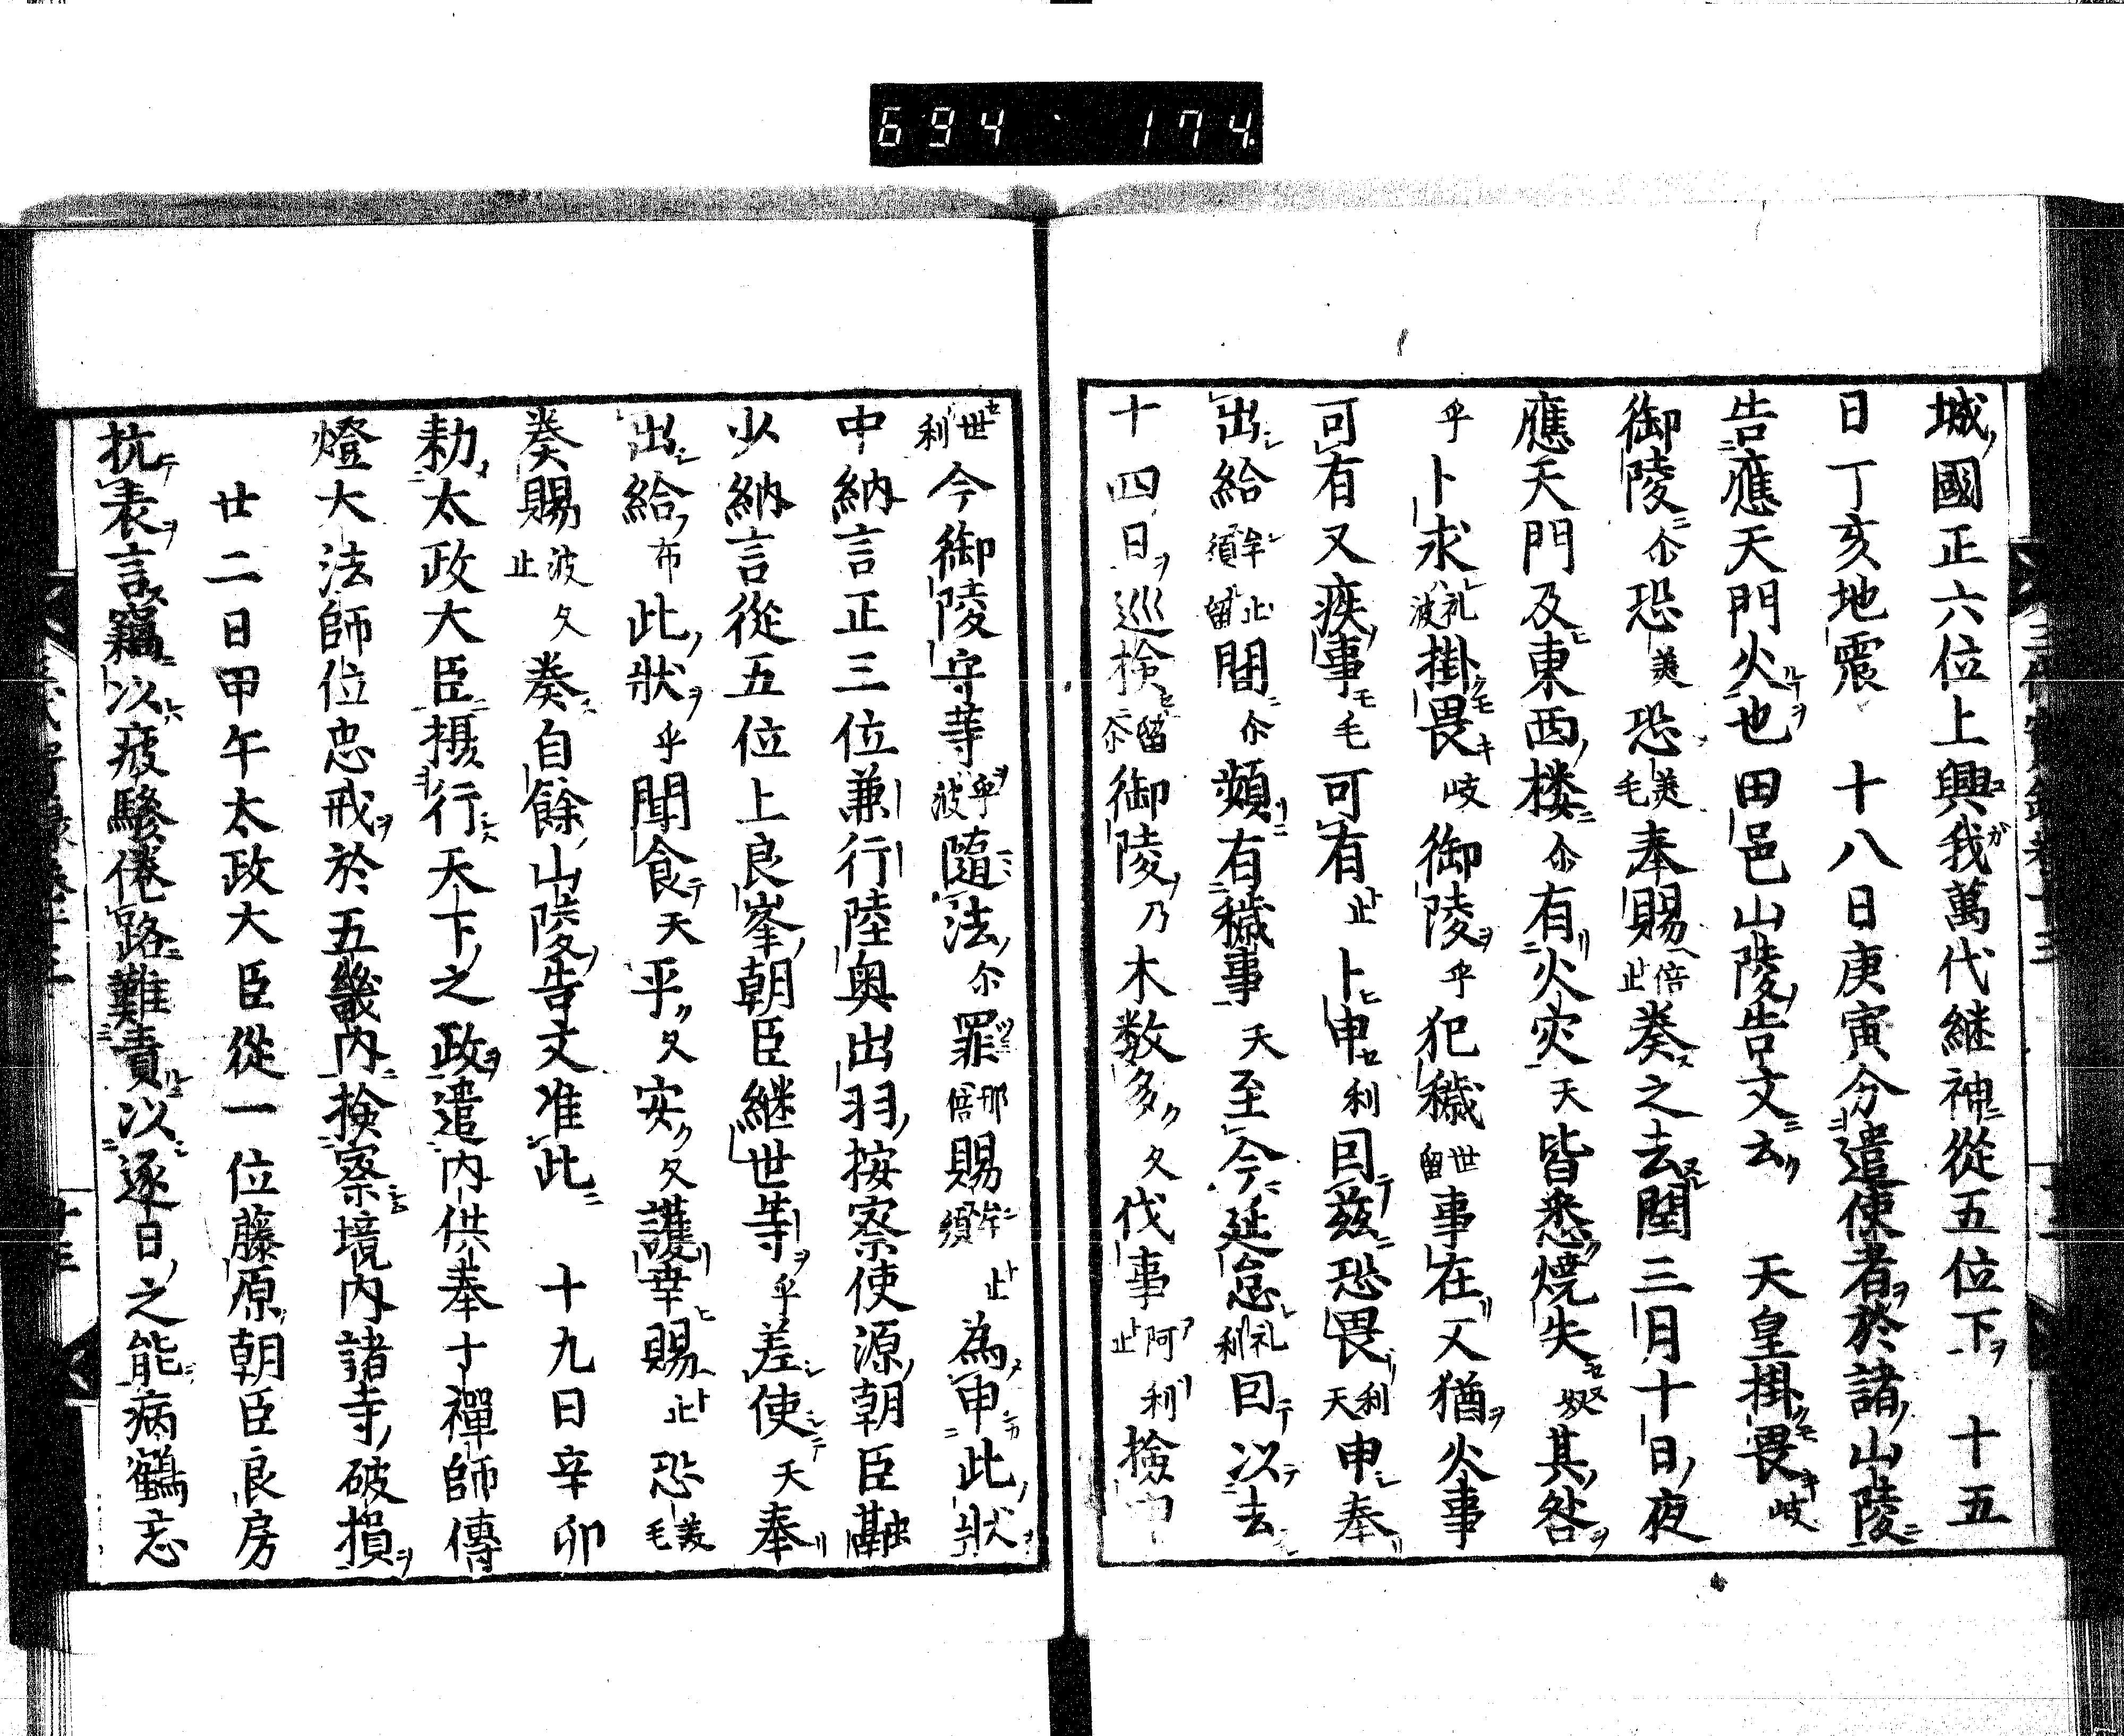 694 174
城國正六位上興我萬代継神從五位下 十五
日丁亥地震 十八日庚寅分遣使者於諸山陵
告應天門火也田邑山陵告文云 天皇掛畏岐
御陵尓恐美恐美毛奉賜倍止奏之去閏三月十日夜
應天門及東西楼尓有火灾天皆悉焼失奴其咎
乎卜求礼波掛畏岐御陵乎犯穢世留事在又猶火事
可有又疾事毛可有止卜申利回茲恐畏利天申奉
出給牟須止留間尓頻有穢事天至今延怠礼利回以去
十四日巡検留尓御陵乃木数多久伐事阿止利撿
世利今御陵守等乎波隨法尓罪那倍賜牟須止為申此狀
中納言正三位兼行陸奥出羽按察使源朝臣
少納言從五位上良峯朝臣継世等乎差使天奉
出給布此狀乎聞食天平久安久護幸賜止恐美毛
奏賜波久止奏自餘山陵告文准此 十九日辛卯
勑太政大臣摂行天下之政遣内供奉十禪師傳
燈大法師位忠戒於五畿内撿察境内諸寺破損
廿二日甲午太政大臣從一位藤原朝臣良房
抗表言竊以疲驂倦路難責以逐日之能病鶴忘